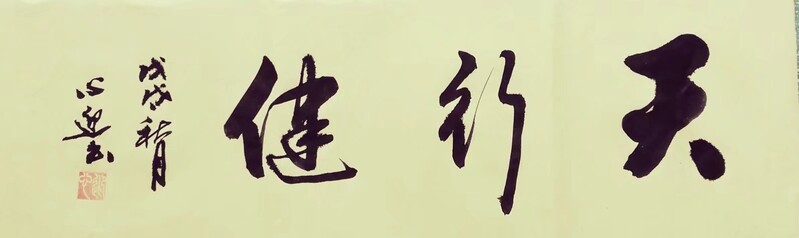 天行健
戊戌秋月
心迎书